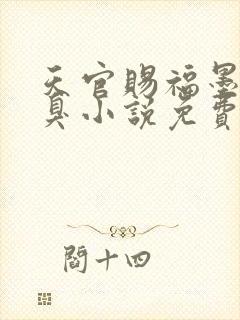 天官賜福墨
臭小説免費
閻十四